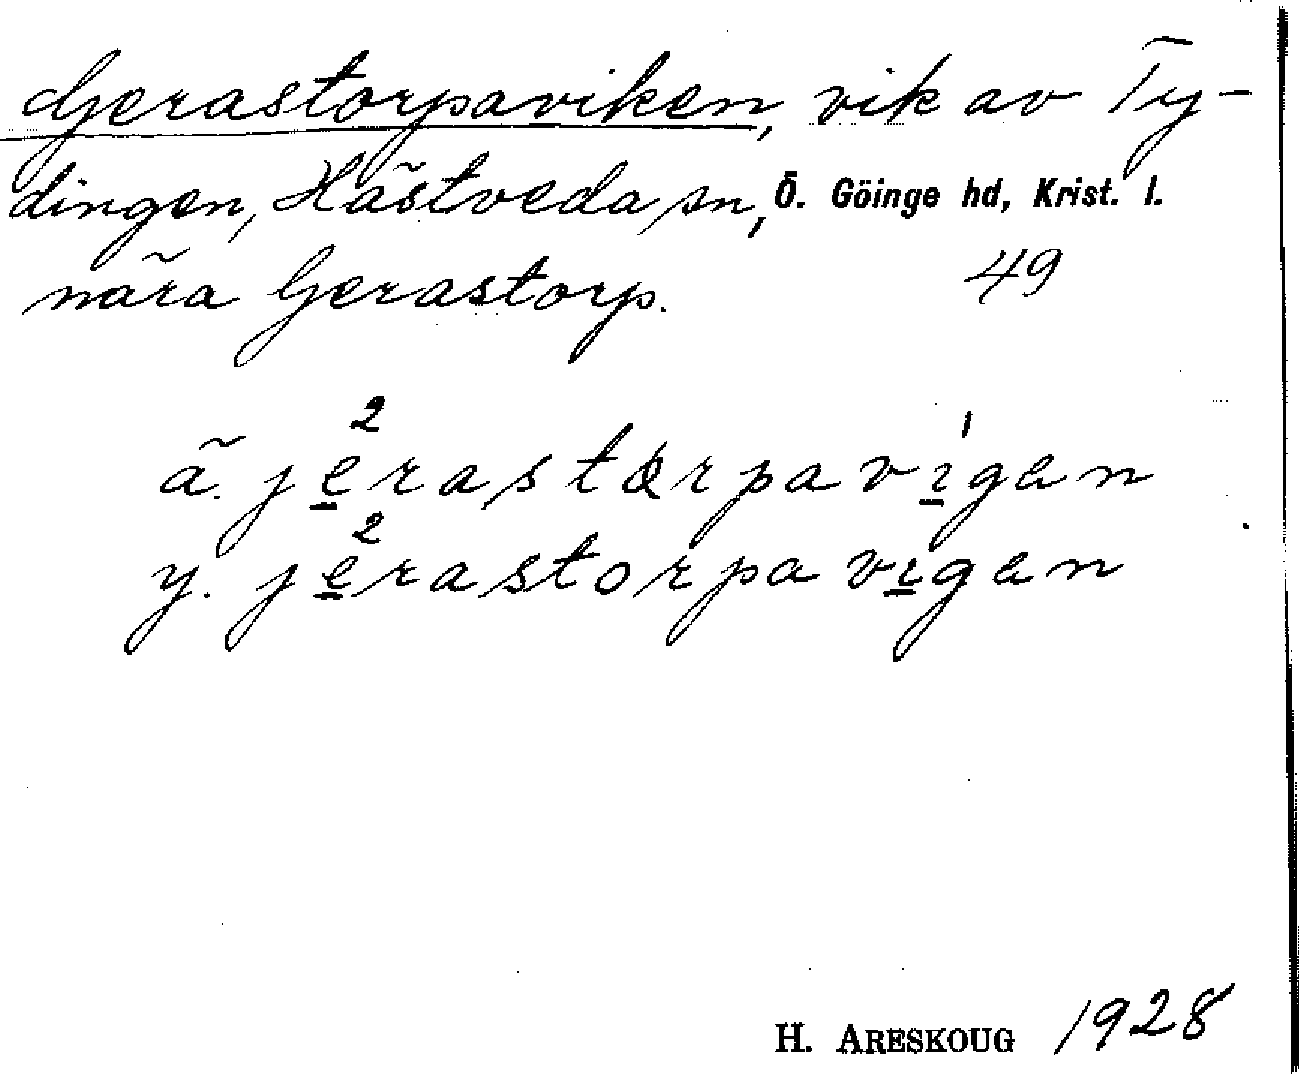 Gerastorpaviken, vik av Ty-
dingen, Hästveda sn, Ö. Göinge hd, Krist. l.
nära Gerastorp. 49
ä. je²rastærpavi¹gen
y. je²rastorpavigen
H. ARESKOUG 1928